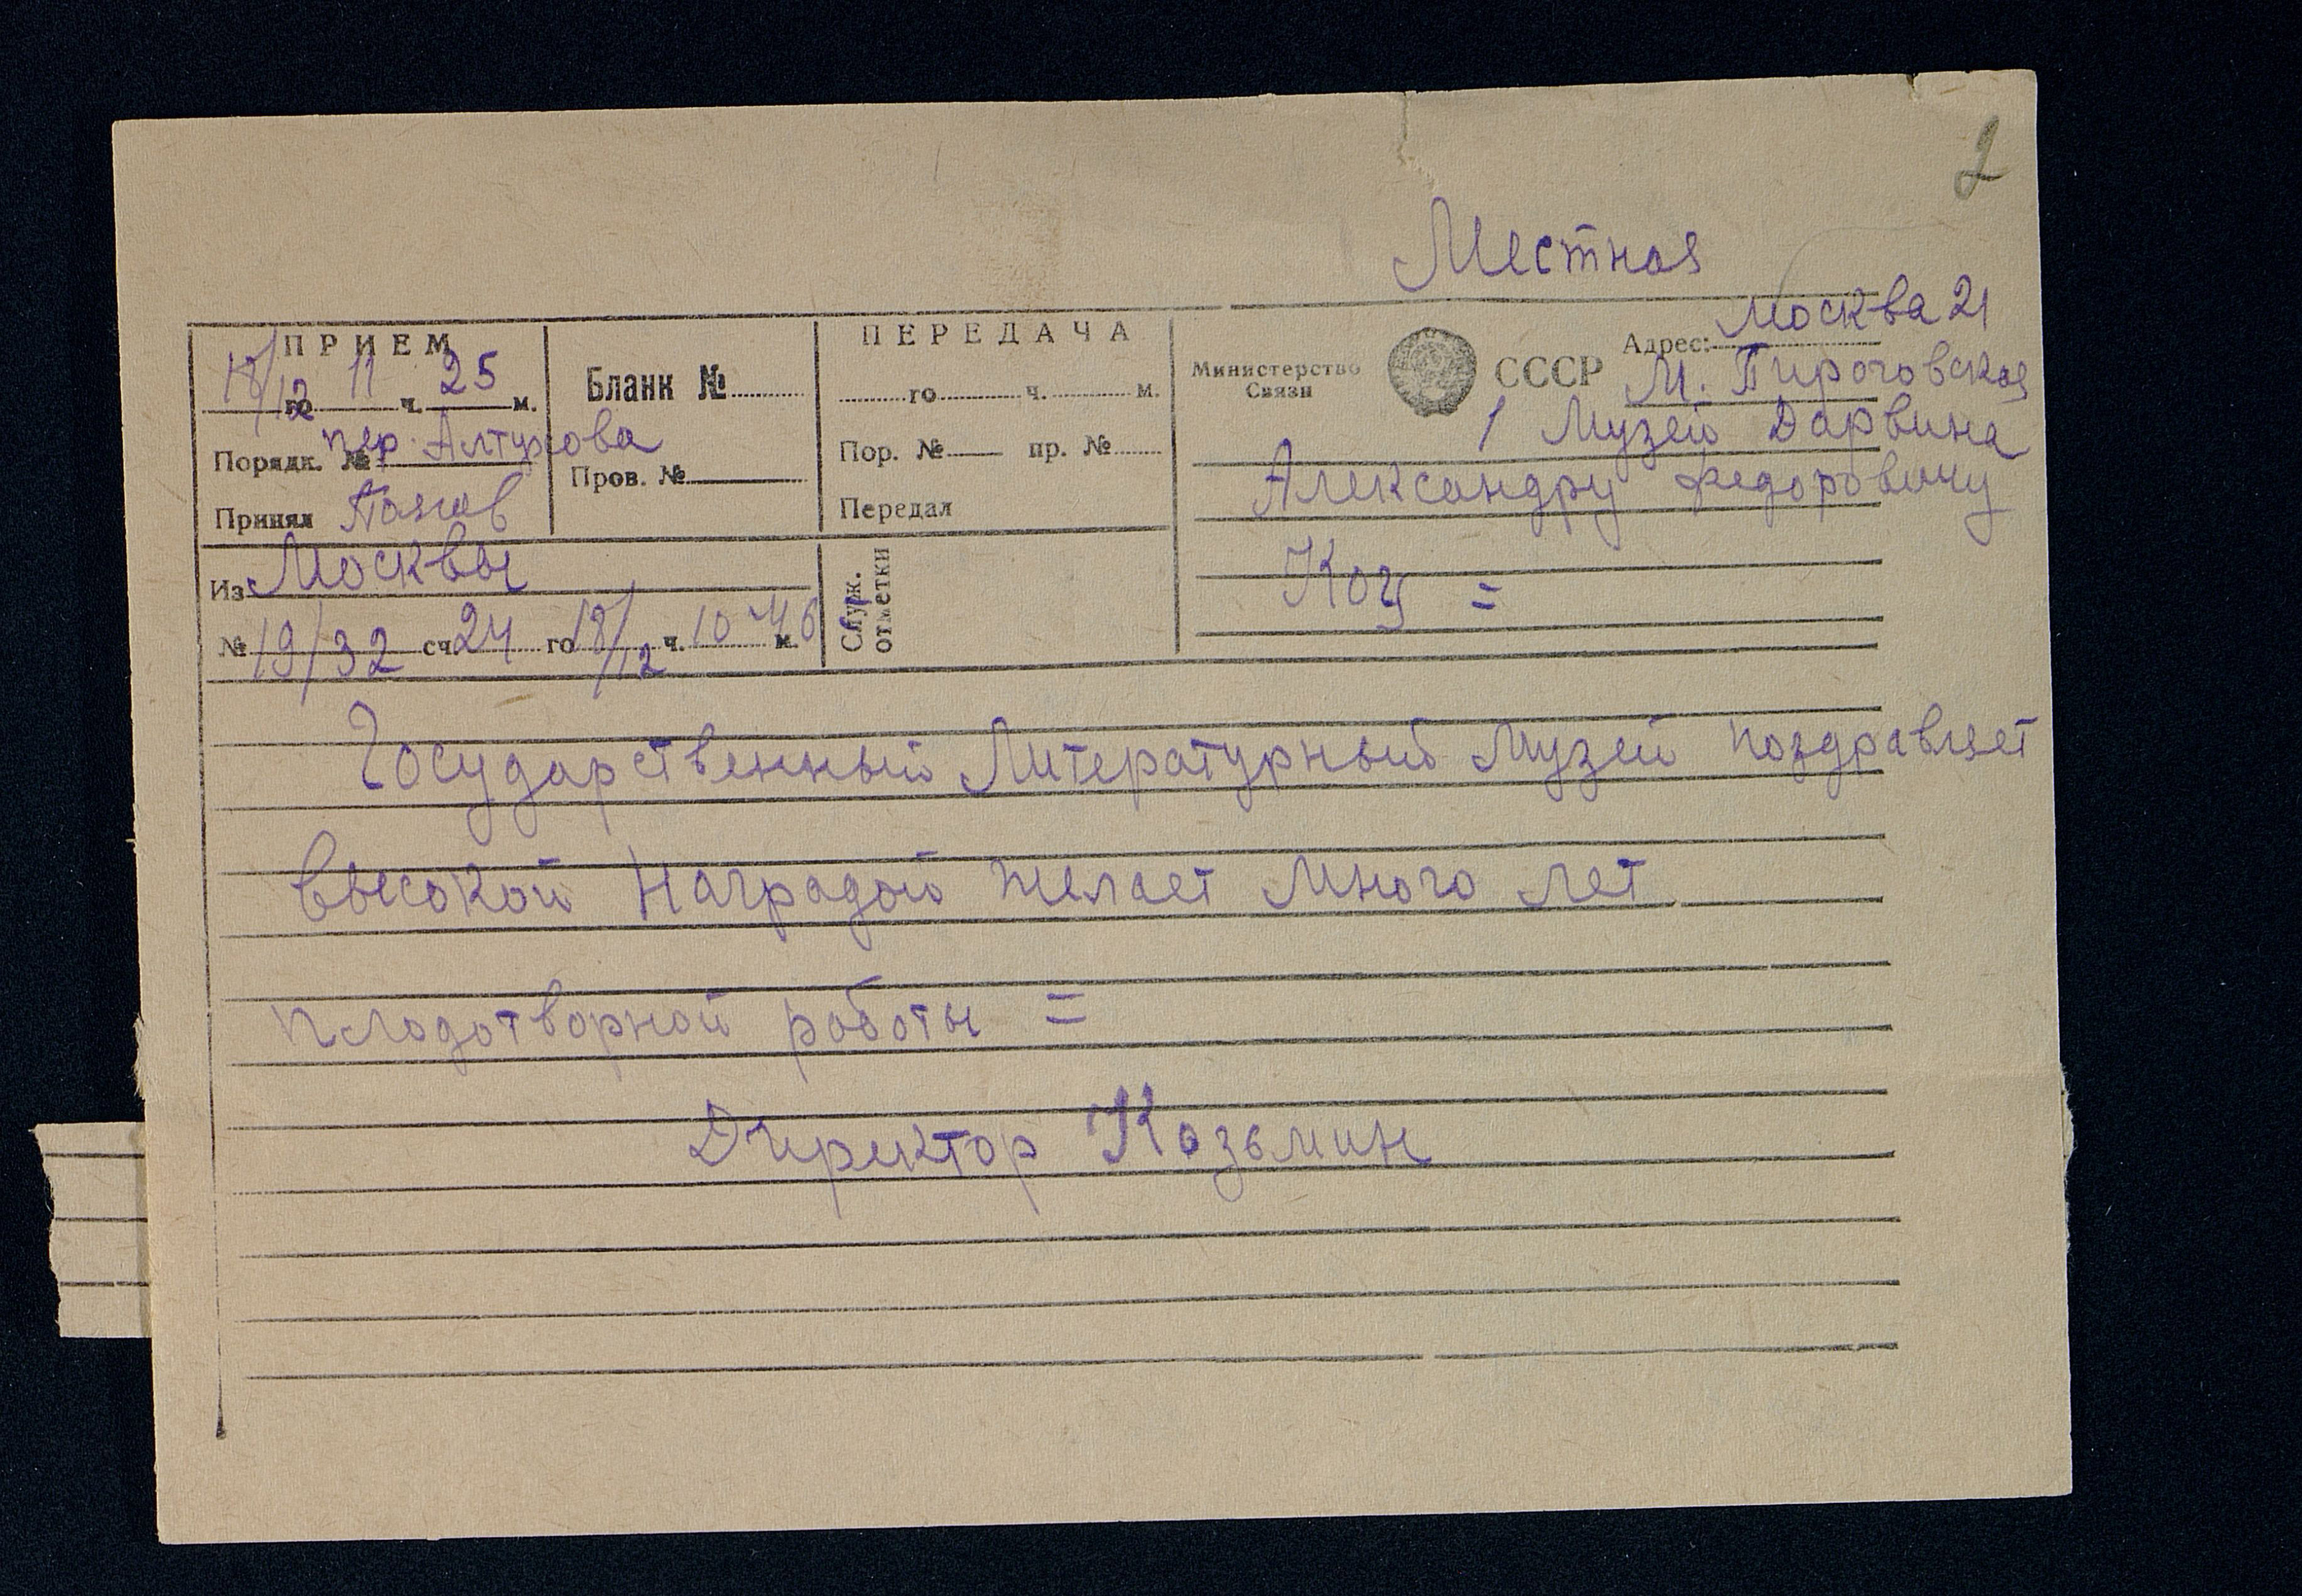 2
Местная
ПРИЕМ
18/12 го 11 ч. 25 м.
Порядк. № пер. Алтухова
Принял
Бланк №
Пров. №
ПЕРЕДАЧА
го ч. м.
Пор. № пр. №
Передал
Из Москвы
№ 19/32 сч 24 го 18/12 ч. 10 46 м.
Служ. отметки
Министерство Связи
СССР
Адрес: Москва 21
М. Пироговская
1 Музей Дарвина
Александру Федоровичу
Коц =
Государственный Литературный Музей поздравляет
Высокой Наградой желает Много лет
плодотворной работы =
Директор Козьмин